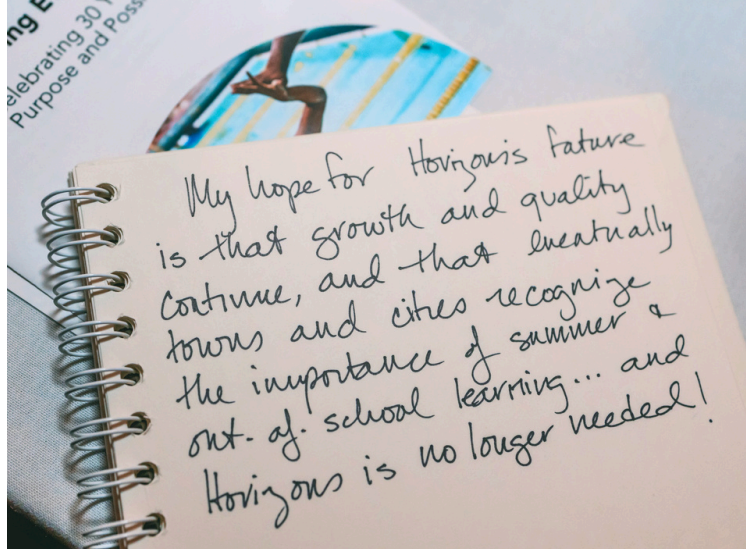 ng E
elebrating 30 y
Purpose and Poss
My hope for Horizon's future
is that growth and quality
continue, and that eventually
towns and cities recognize
the importance of summer &
out-of-school learning... and
Horizons is no longer needed!